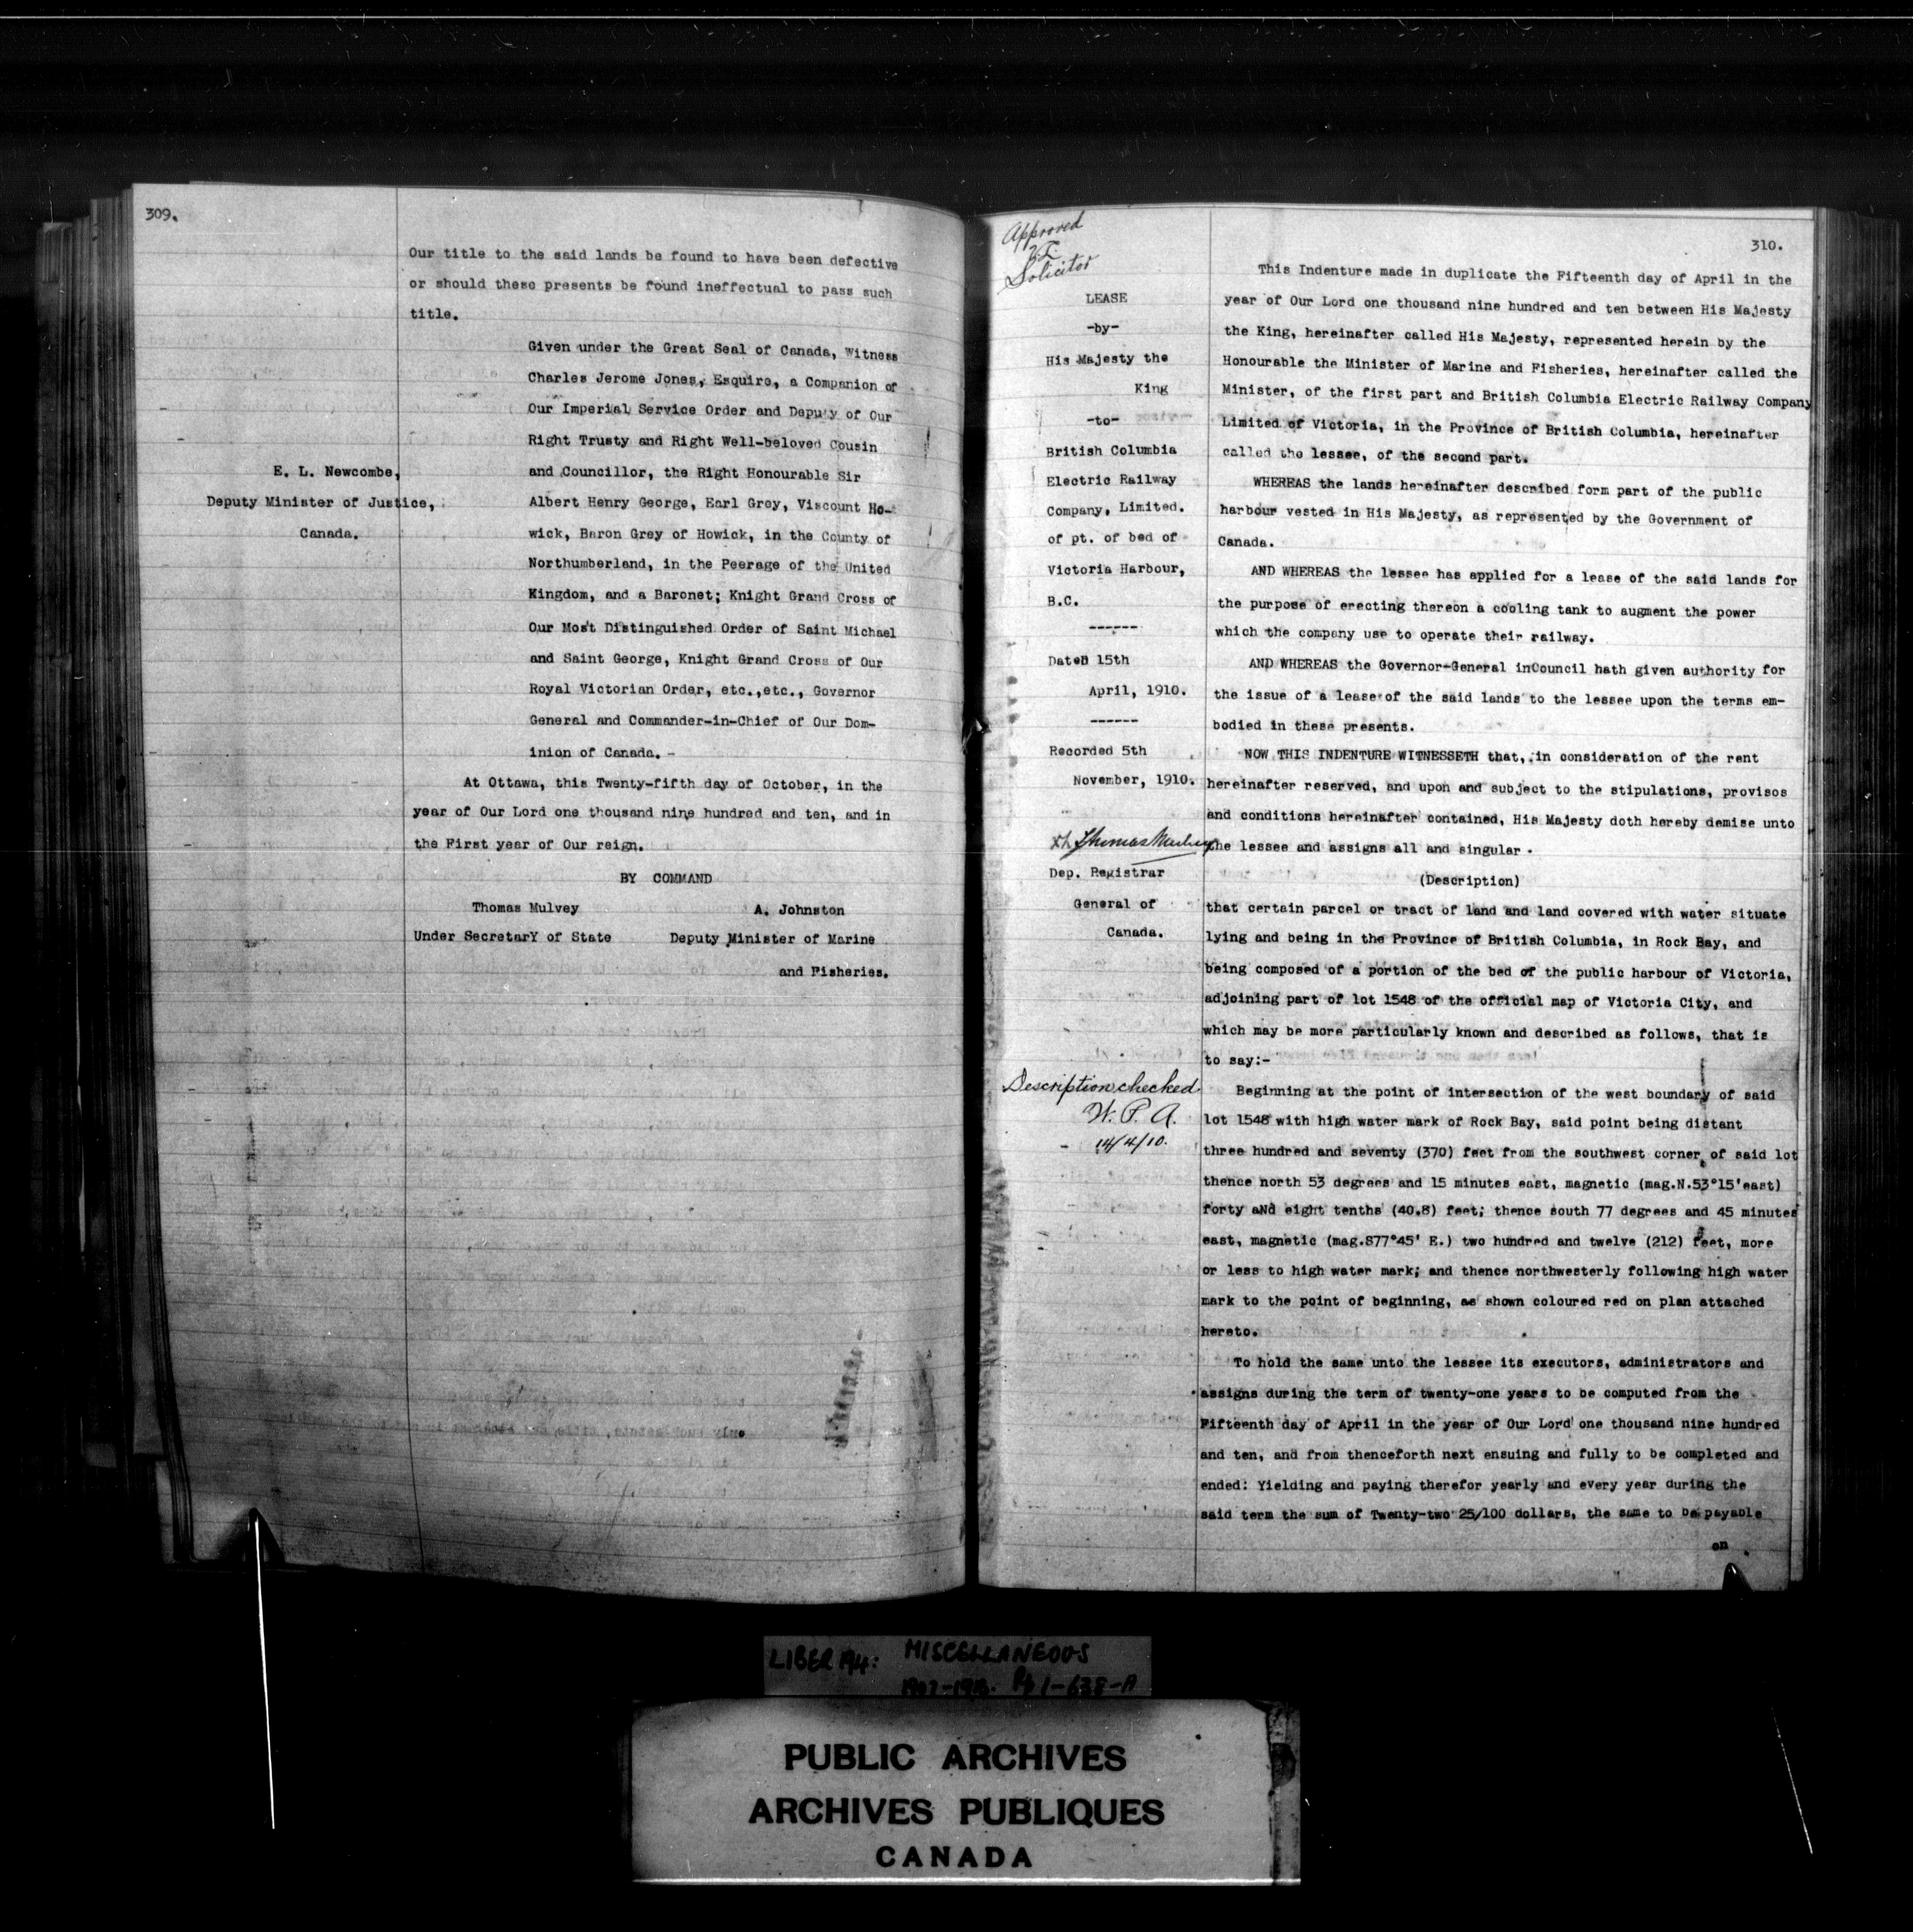 309.
Our title to the said lands be found to have been defective
or should these presents be found ineffectual to pass such
title.
Given under the Great Seal of Canada, Witness
Charles Jerome Jones, Esquire, a Companion of
Our Imperial Service Order and Deputy of Our
Right Trusty and Right Well-beloved Cousin
and Councillor, the Right Honourable Sir
Albert Henry George, Earl Grey, Viscount Ho-
wick, Baron Grey of Howick, in the County of
Northumberland, in the Peerage of the United
Kingdom, and a Baronet; Knight Grand Cross of
Our Most Distinguished Order of Saint Michael
and Saint George, Knight Grand Cross of Our
Royal Victorian Order, etc.,etc., Governor
General and Commander-in-Chief of Our Dom-
inion of Canada. -
E. L. Newcombe,
Deputy Minister of Justice,
Canada.
At Ottawa, this Twenty-fifth day of October, in the
year of Our Lord one thousand nine hundred and ten, and in
the First year of Our reign.
BY COMMAND
Thomas Mulvey A. Johnston
Under SecretarY of State Deputy Minister of Marine
and Fisheries.
310.
Approved
Solicitor
LEASE
-by-
His Majesty the
King
-to-
British Columbia
Electric Railway
Company, Limited.
of pt. of bed of
Victoria Harbour,
B.C.
------
Dated 15th
April, 1910.
------
Recorded 5th
November, 1910.
Thomas Mulvey
Dep. Registrar
General of
Canada.
Description checked
W. P. A.
14/4/10.
This Indenture made in duplicate the Fifteenth day of April in the
year of Our Lord one thousand nine hundred and ten between His Majesty
the King, hereinafter called His Majesty, represented herein by the
Honourable the Minister of Marine and Fisheries, hereinafter called the
Minister, of the first part and British Columbia Electric Railway Company
Limited of Victoria, in the Province of British Columbia, hereinafter
called the lessee, of the second part.
WHEREAS the lands hereinafter described form part of the public
harbour vested in His Majesty, as represented by the Government of
Canada.
AND WHEREAS the lessee has applied for a lease of the said lands for
the purpose of erecting thereon a cooling tank to augment the power
which the company use to operate their railway.
AND WHEREAS the Governor-General inCouncil hath given authority for
the issue of a lease of the said lands to the lessee upon the terms em-
bodied in these presents.
NOW THIS INDENTURE WITNESSETH that, in consideration of the rent
hereinafter reserved, and upon and subject to the stipulations, provisos
and conditions hereinafter contained, His Majesty doth hereby demise unto
the lessee and assigns all and singular .
(Description)
that certain parcel or tract of land and land covered with water situate
lying and being in the Province of British Columbia, in Rock Bay, and
being composed of a portion of the bed of the public harbour of Victoria,
adjoining part of lot 1548 of the official map of Victoria City, and
which may be more particularly known and described as follows, that is
to say:-
Beginning at the point of intersection of the west boundary of said
lot 1548 with high water mark of Rock Bay, said point being distant
three hundred and seventy (370) feet from the southwest corner of said lot
thence north 53 degrees and 15 minutes east, magnetic (mag.N.53°15'east)
forty aNd eight tenths (40.8) feet; thence south 77 degrees and 45 minutes
east, magnetic (mag.S77°45' E.) two hundred and twelve (212) feet, more
or less to high water mark; and thence northwesterly following high water
mark to the point of beginning, as shown coloured red on plan attached
hereto.
To hold the same unto the lessee its executors, administrators and
assigns during the term of twenty-one years to be computed from the
Fifteenth day of April in the year of Our Lord one thousand nine hundred
and ten, and from thenceforth next ensuing and fully to be completed and
ended: Yielding and paying therefor yearly and every year during the
said term the sum of Twenty-two 25/100 dollars, the same to be payable
on
LIBER 194: MISCELLANEOUS
Pp 1-638-A
PUBLIC ARCHIVES
ARCHIVES PUBLIQUES
CANADA